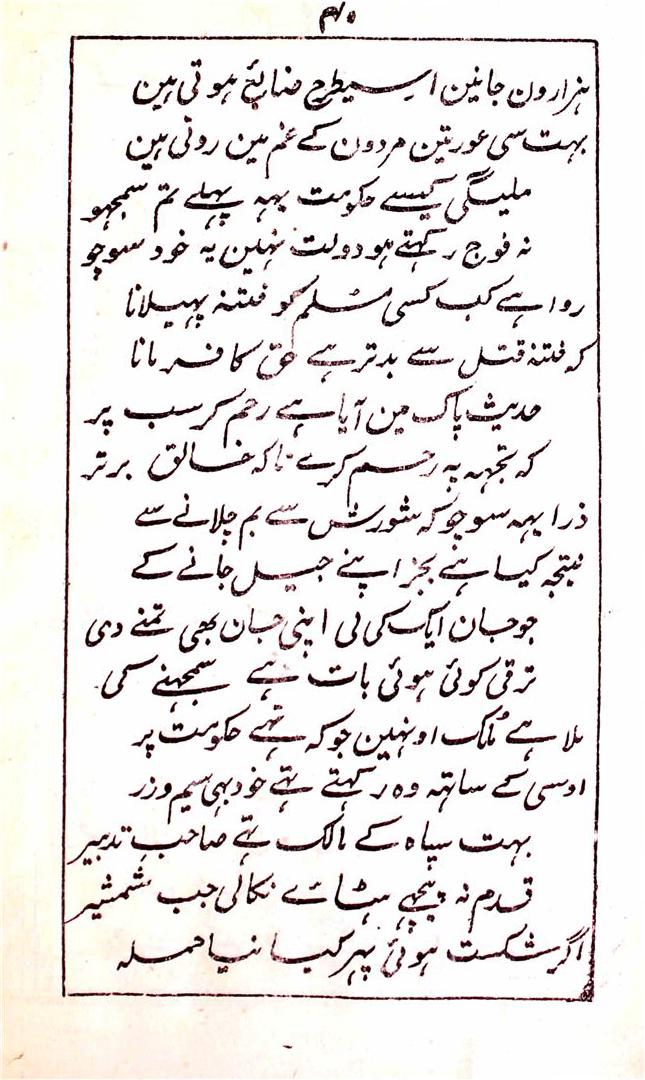 ۴۰
ہزارون جانین اسیطرح ضایٔع ہوتی ہین
بہت سی عورتین مردون کے غم مین روتی ہین
ملیگی کیسے حکومت یہہ پہلے تم سمجھو
نہ فوج رکہتے ہو دولت نہین یہ خود سوچو
روا ہے کب کسی مسلم کو فتنہ پہیلانا
کہ فتنۂ قتل سے بدتر ہے حق کا فرمانا
حدیث پاک مین آیا ہے رحم کر سب پر
کہ تجھہ پہ رحم کرے تاکہ خالق برتر
ذرا یہہ سوچو کہ شورش سے بم چلانے سے
نیتجہ کیا ہے بجز اپنے جیل جانے کے
جو جان ایک کی لی اپنی جان بھی تمنے دی
ترقی کوئی ہوئی بات ہے سمجھنے کی
ملا ہے ملک اونہین جو کہ تہے حکومت پر
اوسی کے ساتہہ وہ رکہتے تہے خود بہی سیم و زر
بہت سپاہ کے مالک تہے صاحب تدبیر
قدم نہ پیچہے ہٹائے نکالی جب شمشیر
اگر شکست ہوئی پہر کیا نیا حملہ